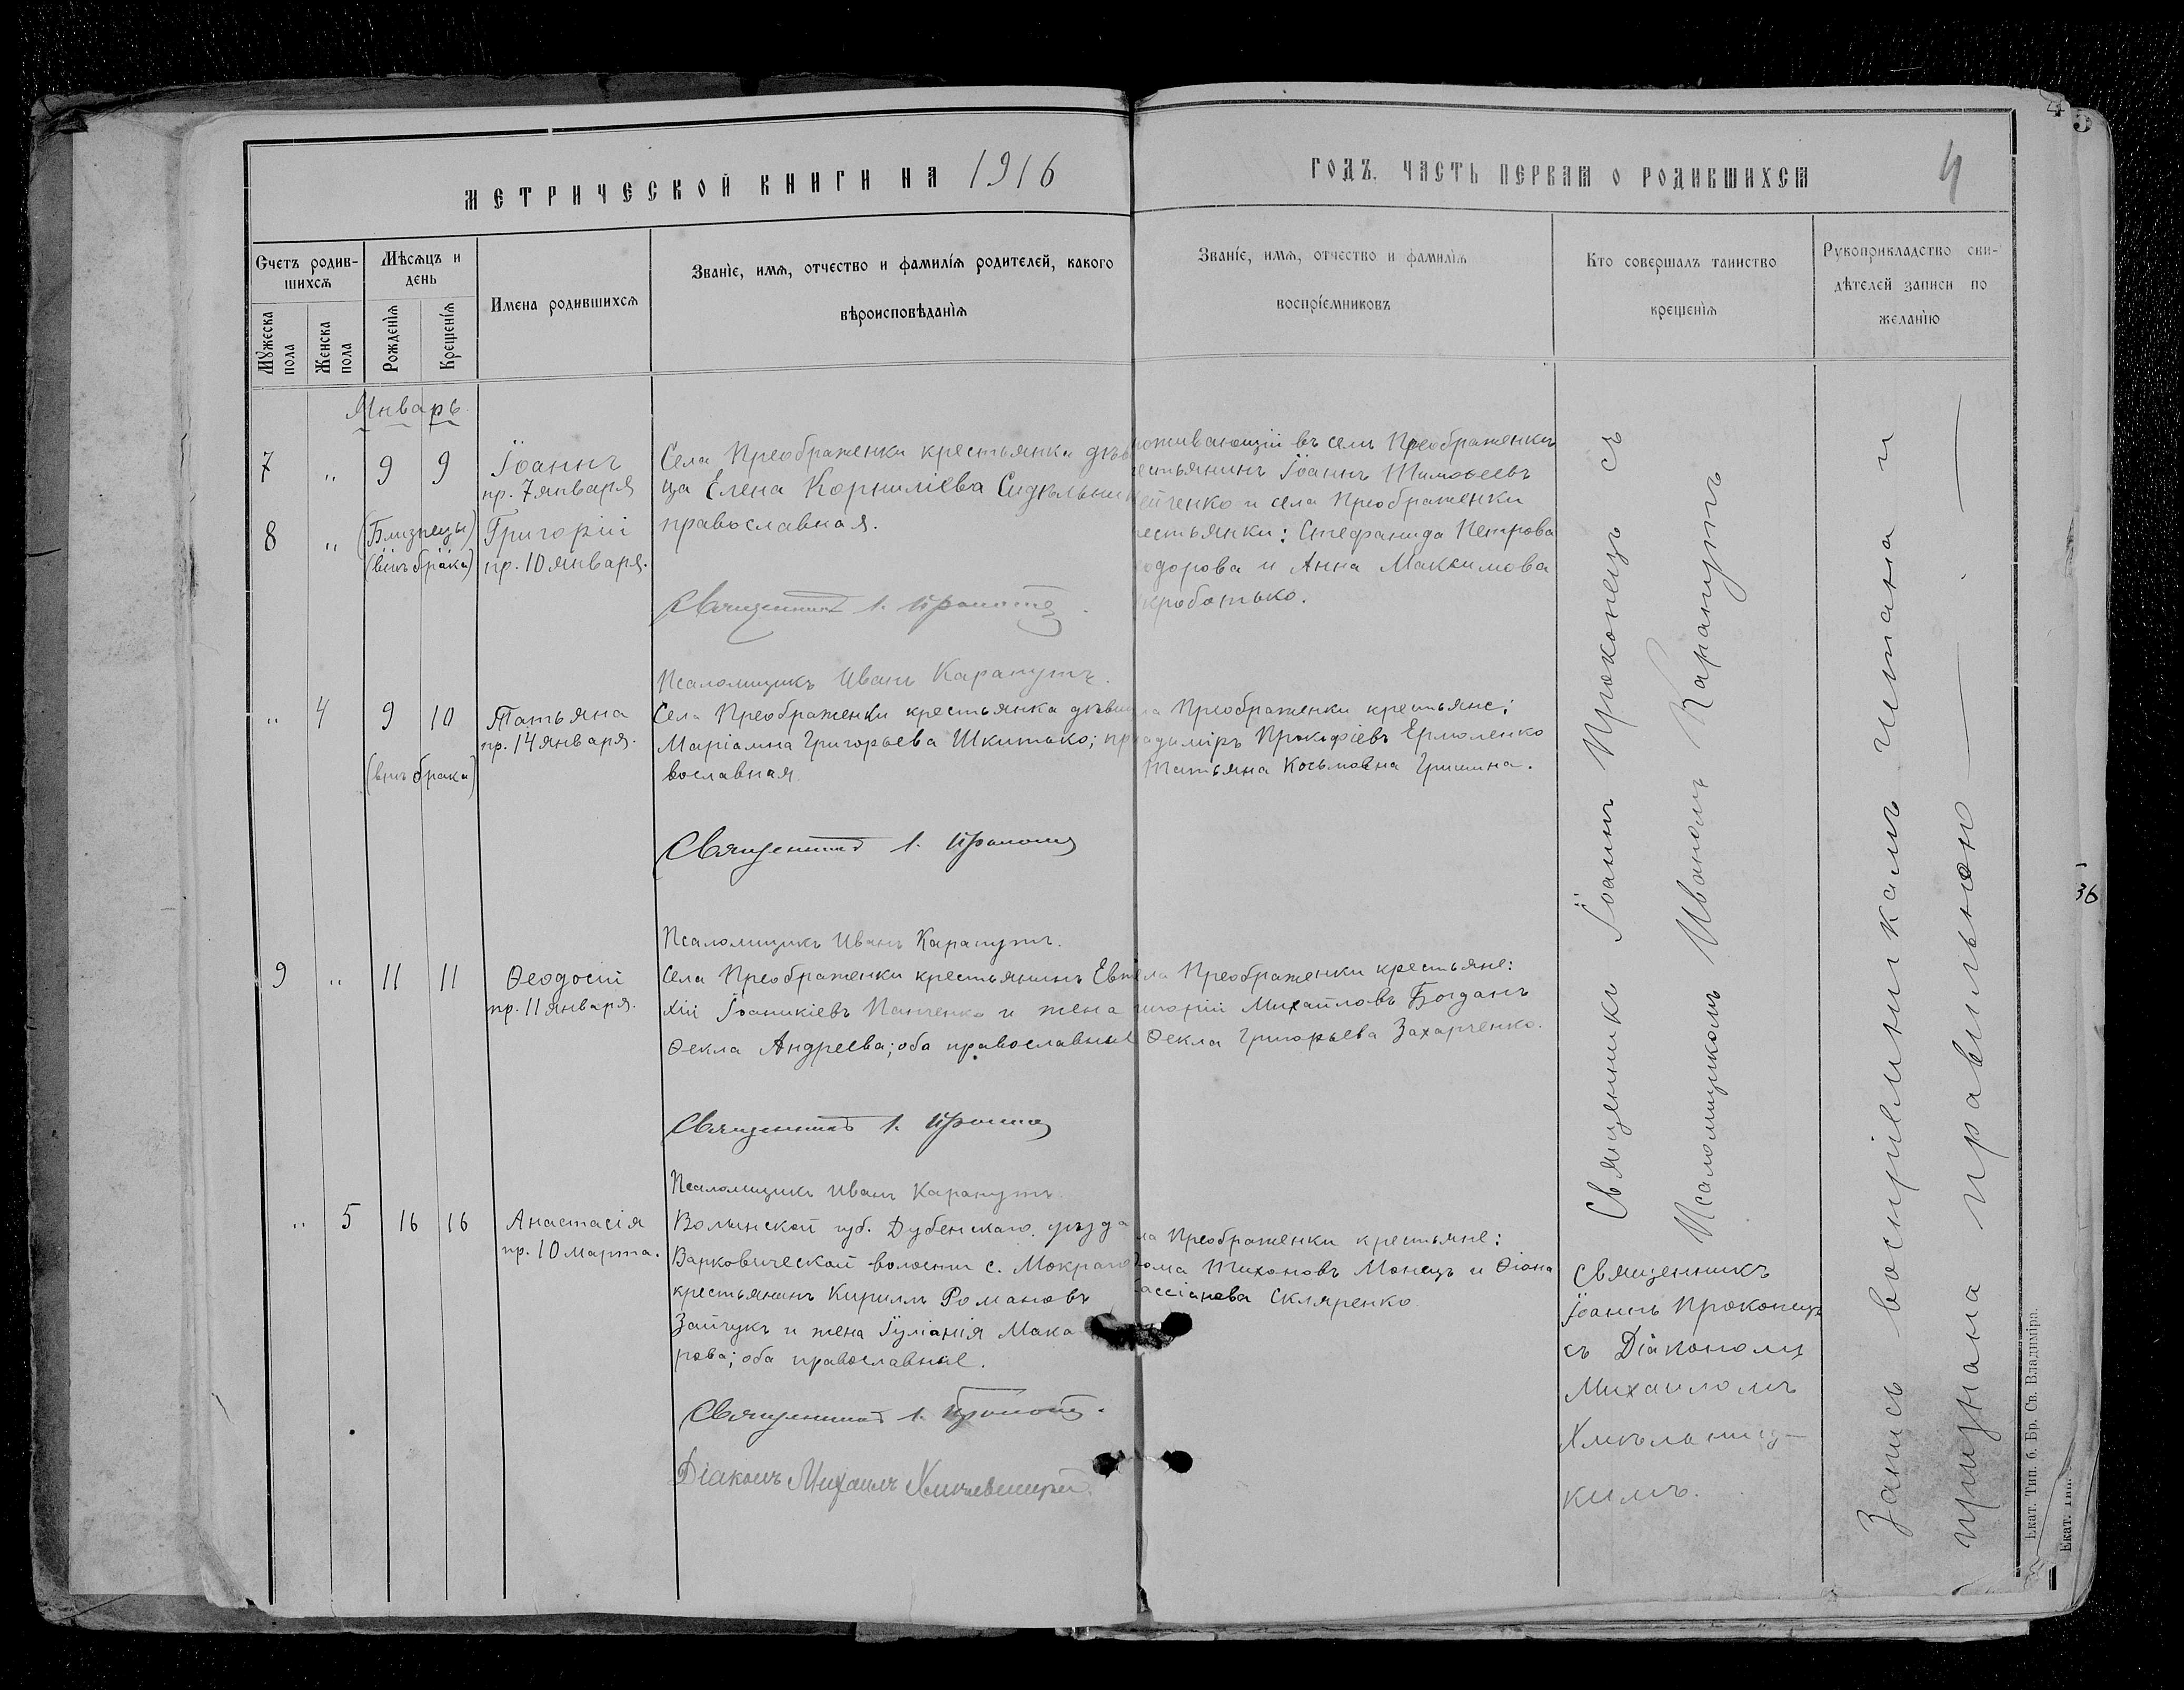 МЕТРИЧЕСКОЙ КНИГИ НА 1916
ГОДЪ. ЧАСТЬ ПЕРВАЯ О РОДИВШИХСЯ
4
Счетъ родив-
шихся
Мѣсяцъ и
день
Имена родившихся
Званіе, имя, отчество и фамилія родителей, какого
вѣроисповѣданія
Мужеска
пола
Женска
пола
Рожденія
Крещенія
Званіе, имя, отчество и фамилія
воспріемниковъ
Кто совершалъ таинство
крещенія
Рукоприкладство сви-
дѣтелей записи по
желанію
Январь
7 " 9 9 Іоаннъ
пр. 7 января
8 " (Близнецы) Григорій
(внѣ брака) пр. 10 января.
Села Преображенки крестьянка дѣв
ца Елена Корниліева Сидѣльни
православная.
Священникъ І. Прокопец
Псаломщикъ Иванъ Карапутъ.
оживающій въ селѣ Преображенкѣ
естьянинъ Іоаннъ Тимоѳеевъ
ейченко и села Преображенки
естьянки: Стефанида Петрова
одорова и Анна Максимова
кробатько.
" 4 9 10 Татьяна
пр. 14 января.
(внѣ брака)
Села Преображенки крестьянка дѣви
Маріамна Григорьева Шкитько; пр
вославная
Священникъ І. Прокопец
Псаломщикъ Иванъ Карапутъ.
ла Преображенки крестьяне:
адиміръ Прокофіевъ Ермоленко
Татьяна Косьмовна Гришина.
9 " 11 11 Ѳеодосій
пр. 11 января.
Села Преображенки крестьянинъ Евт
хій Іоаникіевъ Панченко и жена
Ѳекла Андреева; оба православные
Священникъ І. Прокопец
Псаломщикъ Иванъ Карапутъ
ела Преображенки крестьяне:
игорій Михайловъ Богданъ
Ѳекла Григорьева Захарченко.
" 5 16 16 Анастасія
пр. 10 марта.
Волынской губ. Дубенскаго уѣзда
Варковической волости с. Мокраго
крестьянинъ Кириллъ Романовъ
Зайчукъ и жена Іуліанія Мака
рова; оба православные.
Священникъ І. Прокопец.
Діаконъ Михаилъ Хмѣльницкій.
ла Преображенки крестьяне:
ома Тихоновъ Монецъ и Ѳіона
ассіанова Скляренко
Священникъ Іоаннъ Прокопецъ съ
Псаломщикомъ Иваномъ Карапутъ
Священникъ
Іоаннъ Прокопецъ
съ Діакономъ
Михаиломъ
Хмѣльниц-
кимъ.
Запись воспріемникамъ читана и
признана правильною
Екат. Тип. б. Бр. Св. Владиміра.
Екат. Тип.
4
5
36